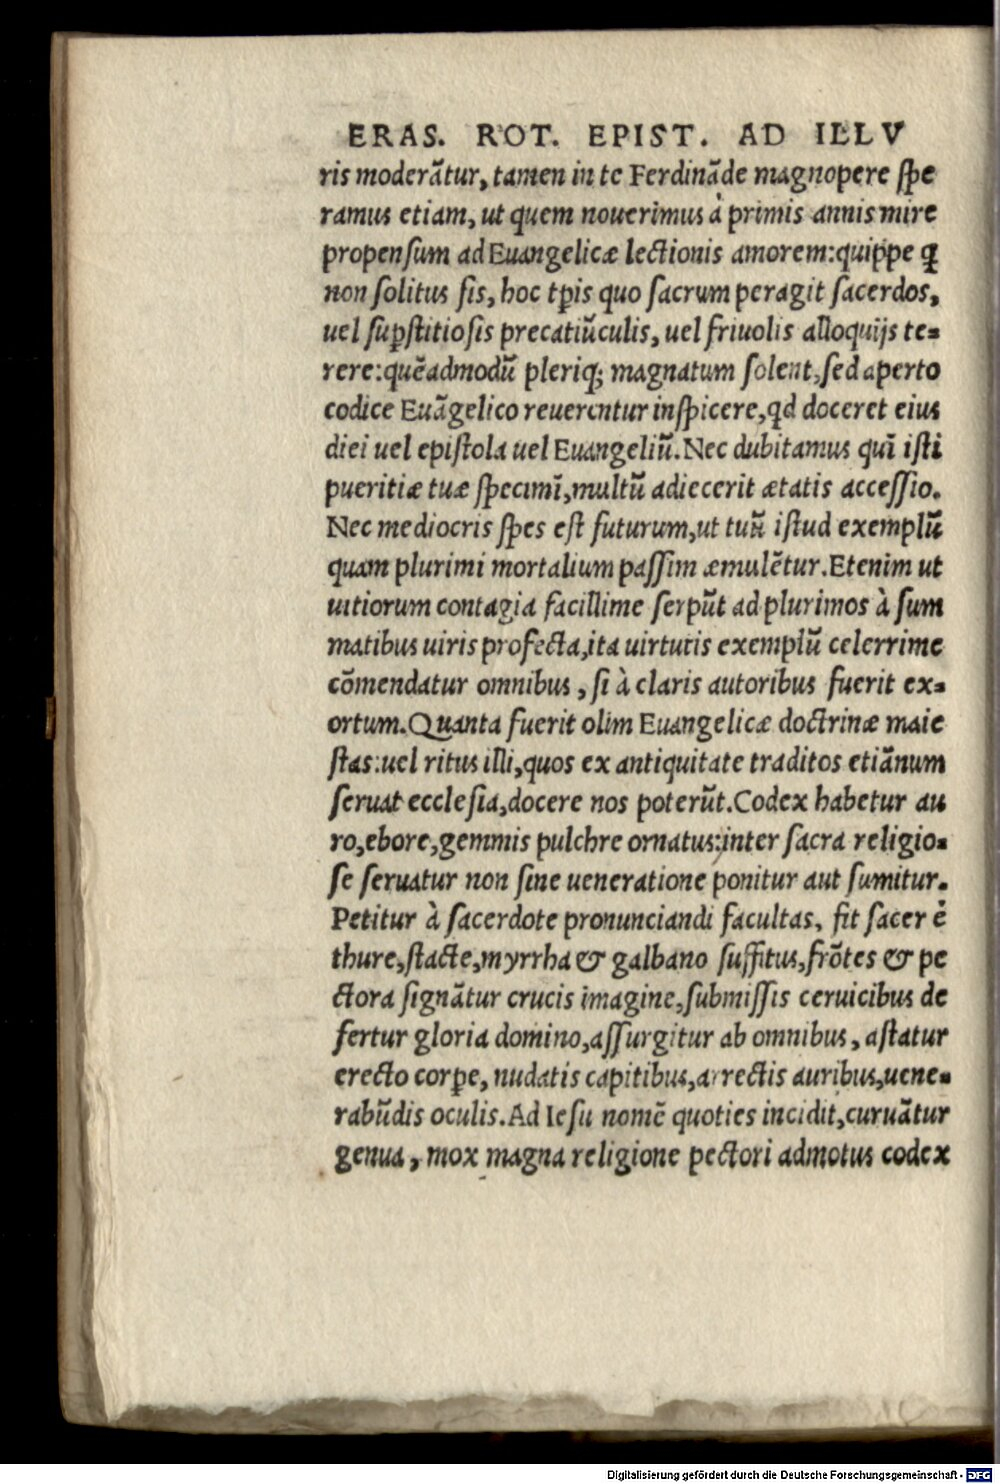 ERAS. ROT. EPIST. AD ILLV
ris moderãtur, tamen in te Ferdinãde magnopere ſpe
ramus etiam, ut quem nouerimus à primis annis mire
propenſum ad Euangelicæ lectionis amorem: quippe ꝗ
non ſolitus ſis, hoc tp̃is quo ſacrum peragit ſacerdos,
uel ſuꝑſtitioſis precatiũculis, uel friuolis alloquijs te=
rere: quẽadmodũ pleriq; magnatum ſolent, ſed aperto
codice Euãgelico reuerentur inſpicere, qd doceret eius
diei uel epiſtola uel Euangeliũ. Nec dubitamus quĩ iſti
pueritiæ tuæ ſpecimĩ, multũ adiecerit ætatis acceſſio.
Nec mediocris ſpes eſt futurum, ut tuũ iſtud exemplũ
quam plurimi mortalium paſſim æmulẽtur. Etenim ut
uitiorum contagia facillime ſerpũt ad plurimos à ſum
matibus uiris profecta, ita uirtutis exemplũ celerrime
cõmendatur omnibus, ſi à claris autoribus fuerit ex=
ortum. Quanta fuerit olim Euangelicæ doctrinæ maie
ſtas: uel ritus illi, quos ex antiquitate traditos etiãnum
ſeruat eccleſia, docere nos poterũt. Codex habetur au
ro, ebore, gemmis pulchre ornatus: inter ſacra religio=
ſe ſeruatur non ſine ueneratione ponitur aut ſumitur.
Petitur à ſacerdote pronunciandi facultas, fit ſacer ẽ
thure, ſtacte, myrrha & galbano ſuffitus, frõtes & pe
ctora ſignãtur crucis imagine, ſubmiſſis ceruicibus de
fertur gloria domino, aſſurgitur ab omnibus, aſtatur
erecto corꝑe, nudatis capitibus, arrectis auribus, uene=
rabũdis oculis. Ad Ieſu nomẽ quoties incidit, curuãtur
genua, mox magna religione pectori admotus codex
Digitalisierung gefördert durch die Deutsche Forschungsgemeinschaft - DFG